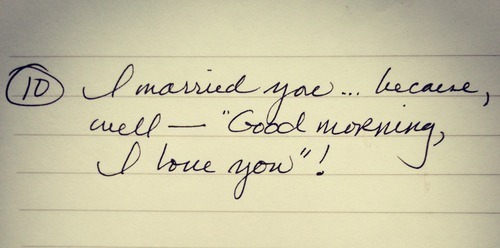 10 I married you... because,
well — "Good morning,
I love you"!